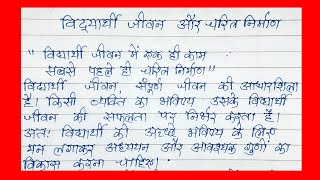 विद्यार्थी जीवन और चरित्र निर्माण
" विद्यार्थी जीवन में एक ही काम
सबसे पहले हो चरित्र निर्माण"
विद्यार्थी जीवन, संपूर्ण जीवन की आधारशिला
है। किसी व्यक्ति का भविष्य उसके विद्यार्थी
जीवन की सफलता पर निर्भर करता है।
अतः विद्यार्थी को अच्छे भविष्य के लिए
मन लगाकर अध्ययन और आवश्यक गुणों का
विकास करना चाहिए।